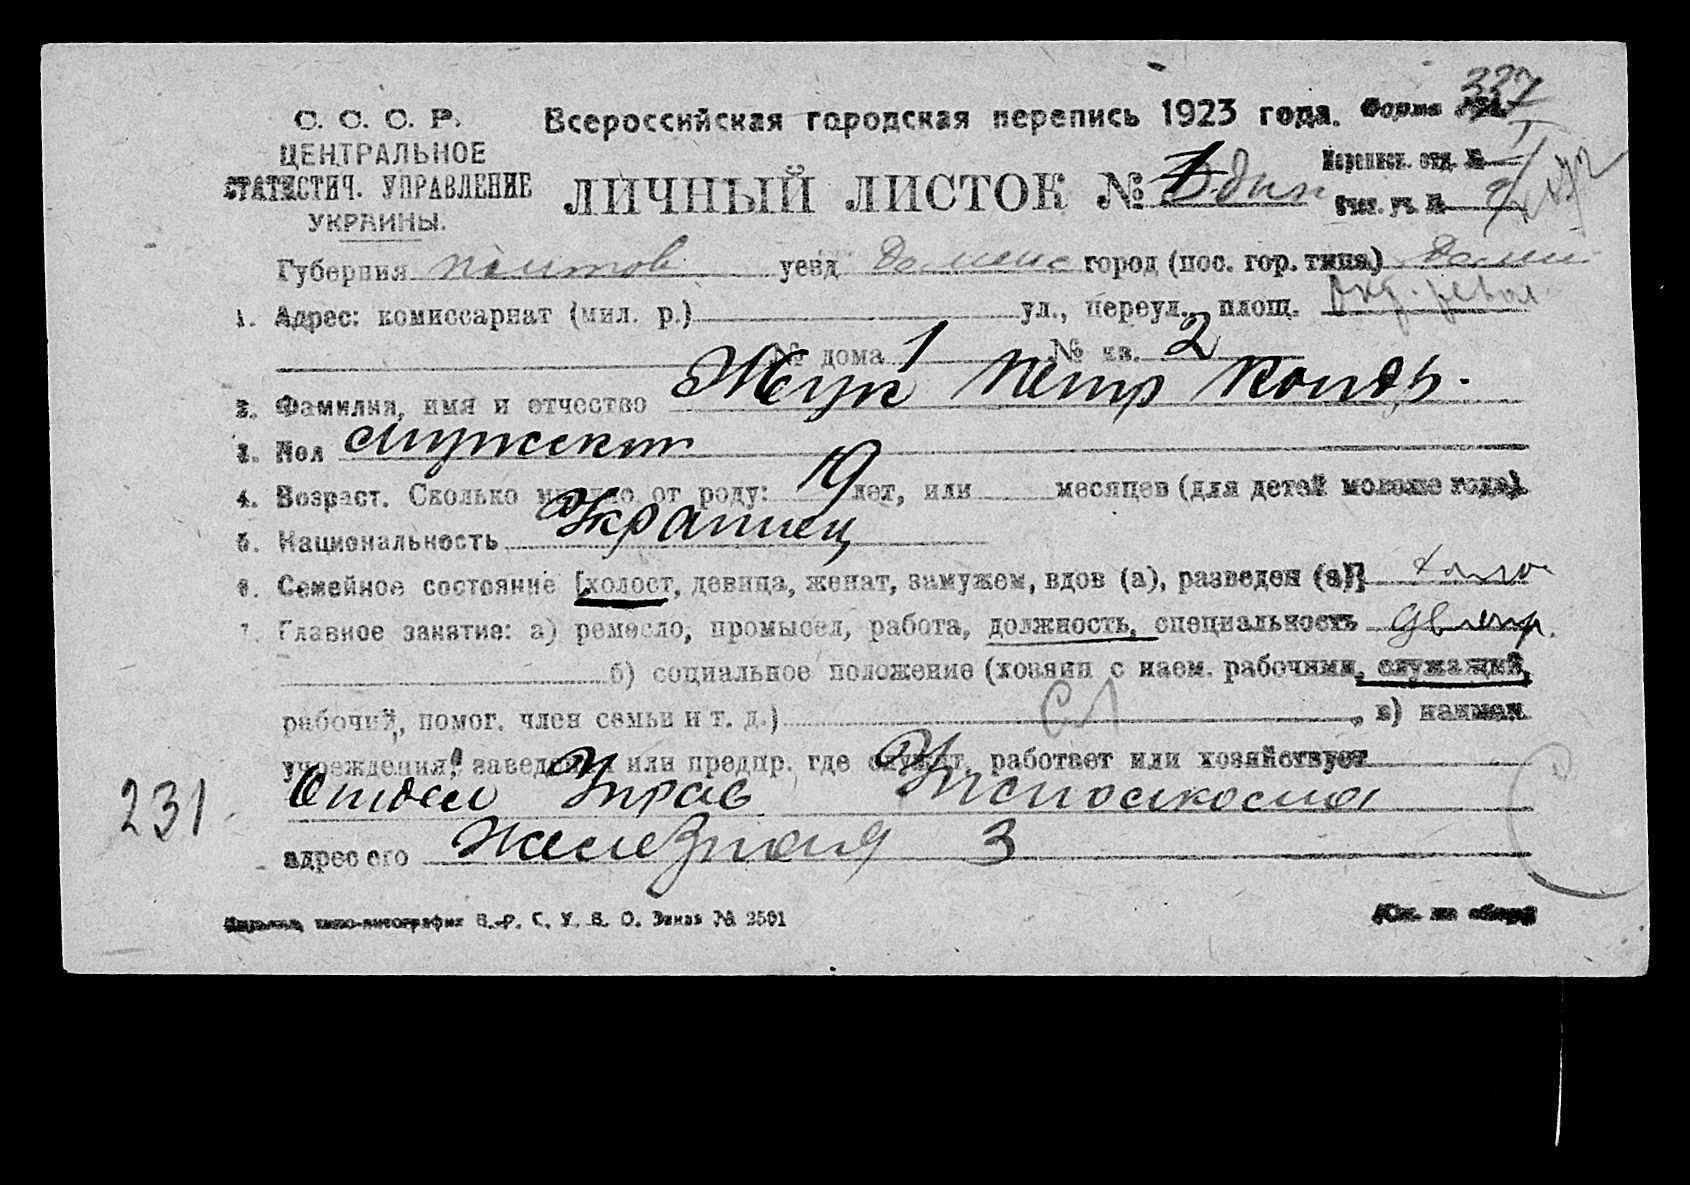 С. С. С. Р.
ЦЕНТРАЛЬНОЕ
СТАТИСТИЧ. УПРАВЛЕНИЕ
УКРАИНЫ.
Всероссийская городская перепись 1923 года. Форма
337
ЛИЧНЫЙ ЛИСТОК № 1 Один
Перепис. отд. № I
Счет. уч. №
Губерния Полтов уезд город (пос. гор. типа)
1. Адрес: комиссариат (мил. р.) ул., переул., площ.
№ дома 1 № кв. 2
2. Фамилия, имя и отчество Жук Петр Кондр.
3. Пол мужской
4. Возраст. Сколько минуло от роду: 19 лет, или месяцев (для детей моложе года).
5. Национальность Украинец
6. Семейное состояние [холост, девица, женат, замужем, вдов (а), разведен (а)]
7. Главное занятие: а) ремесло, промысел, работа, должность, специальность
б) социальное положение (хозяин с наем. рабочими, служащий,
рабочий, помог. член семьи и т. д.) СЛ , в) наимен.
учреждения, заведения или предпр. где служит, работает или хозяйствует
Отдел Управ Исполкома
адрес его Железная 3
231
типо-литография В.-Р. С. У. В. О. Заказ № 2501
См. на обор